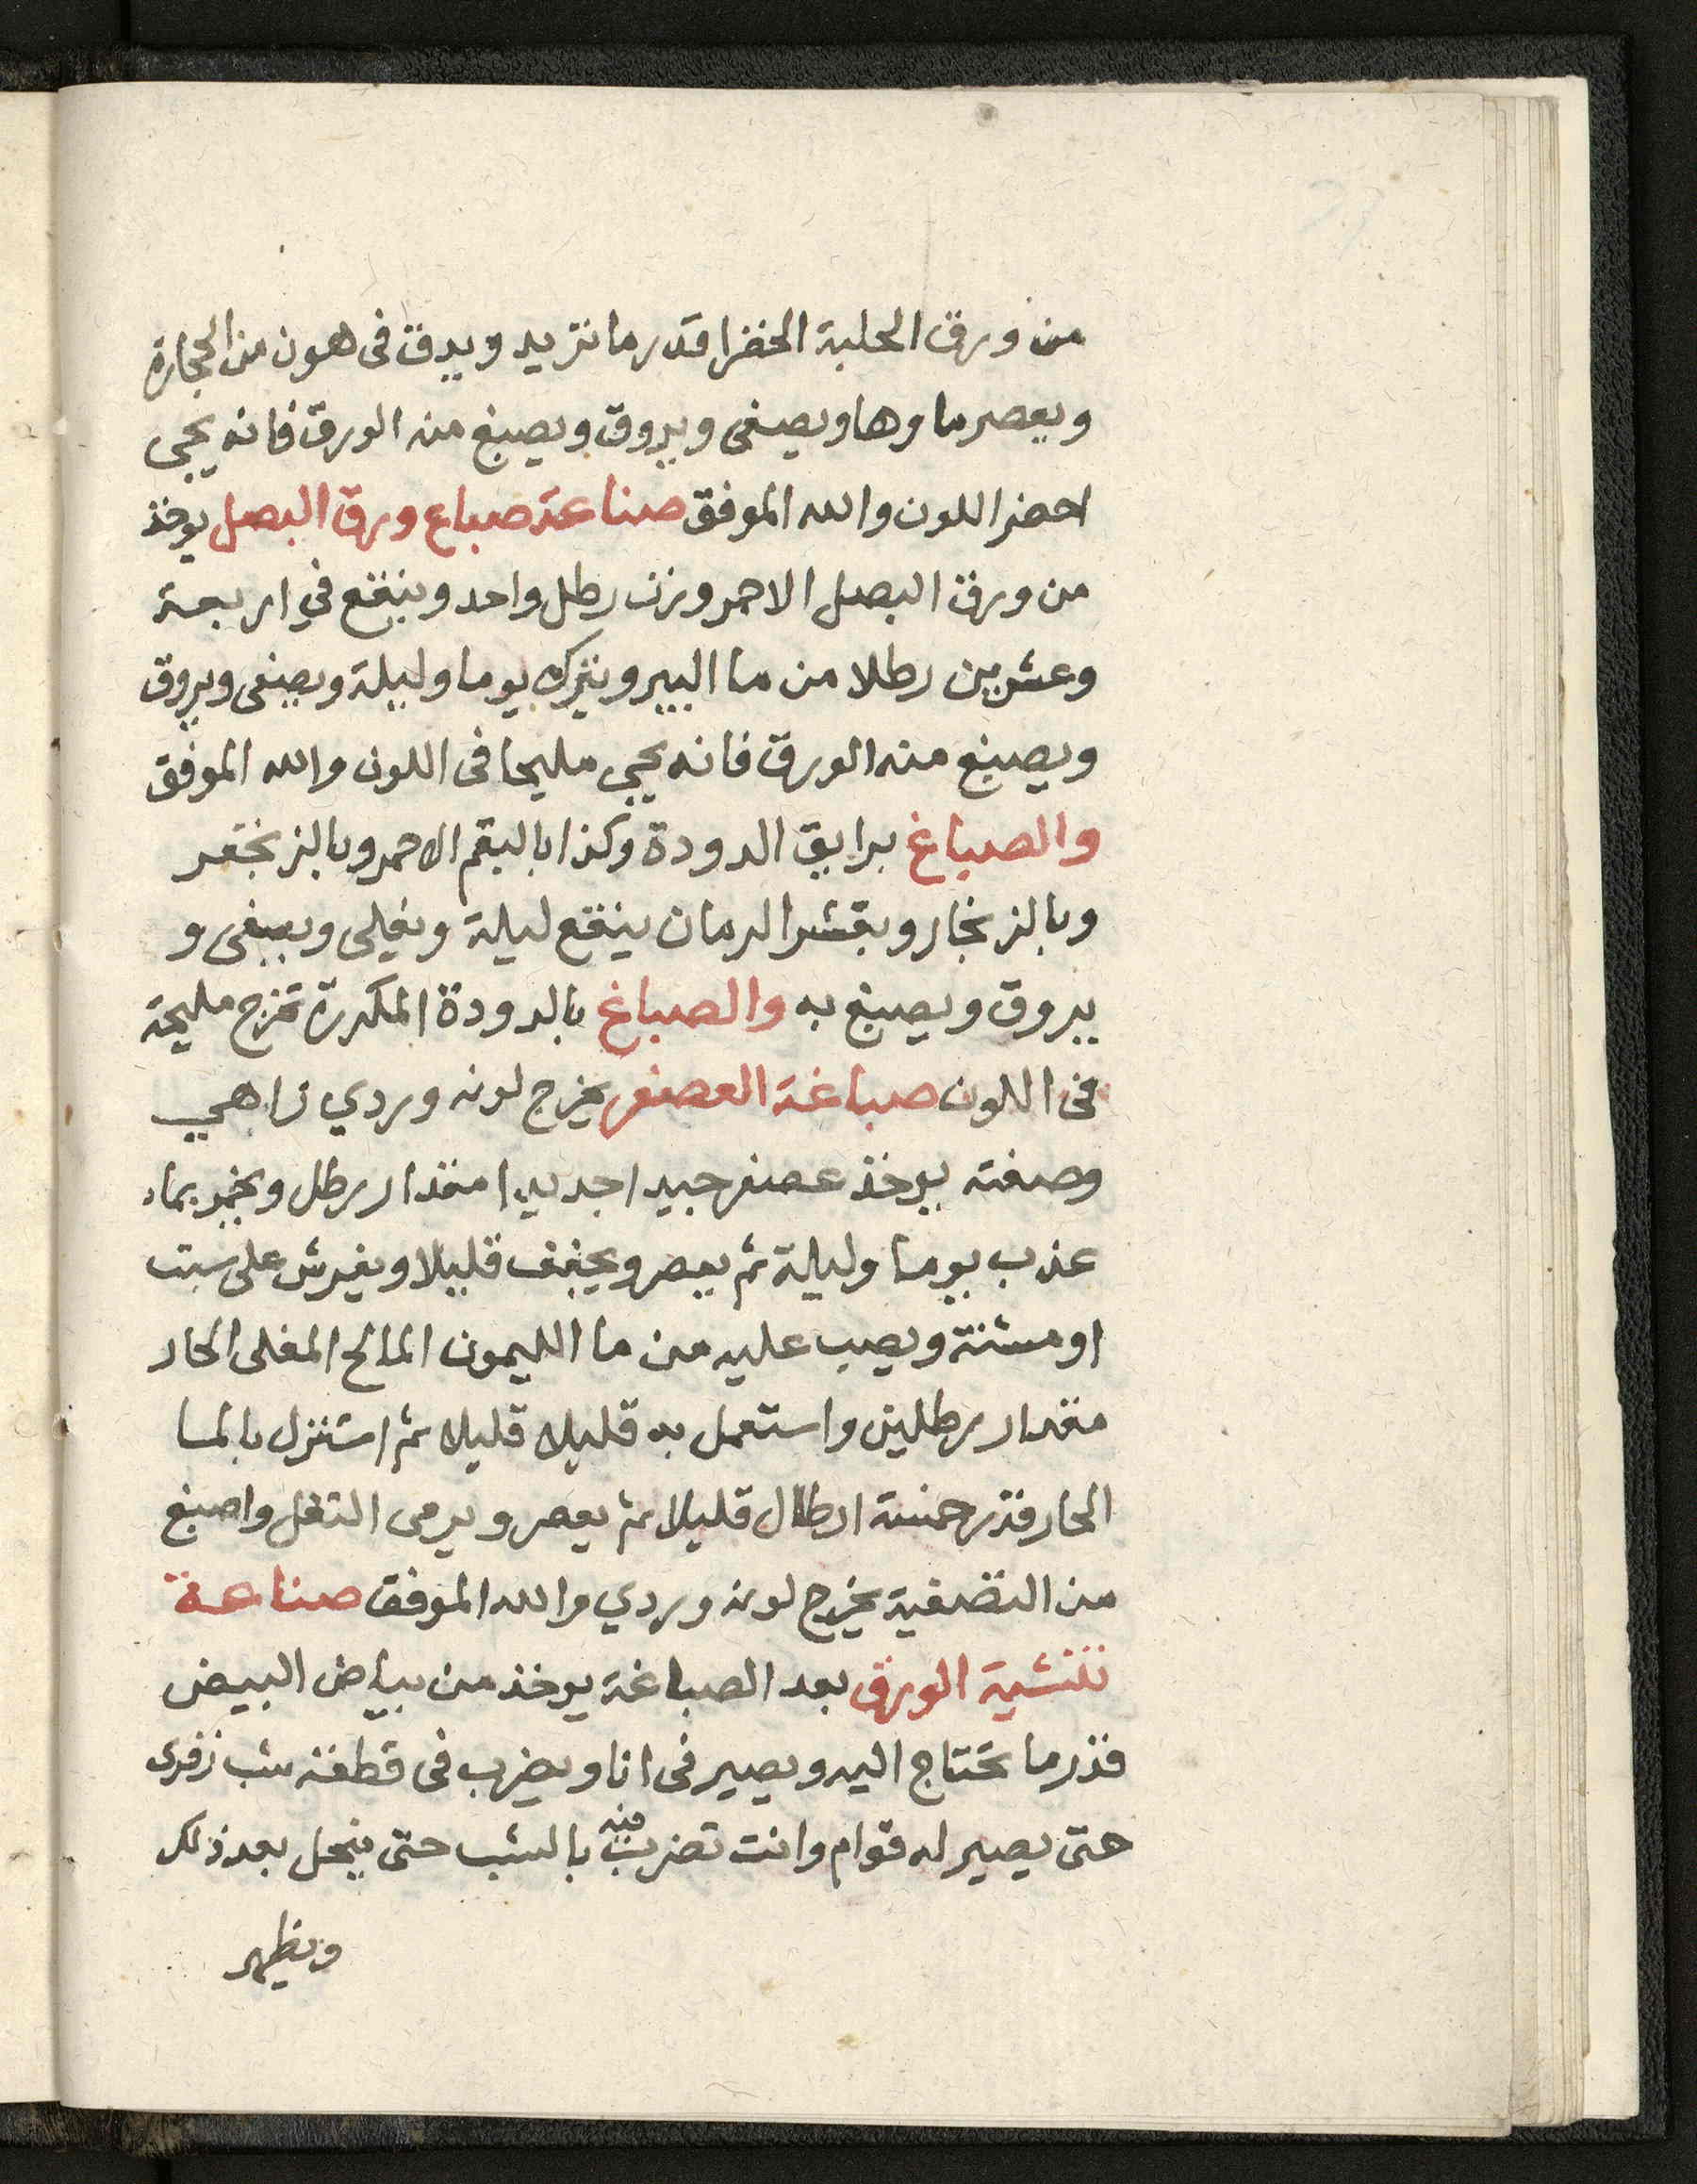 من ورق الحلبة الخضرا قدر ما تريد ويدق فى هون من الحجارة
ويعصر ماوها ويصفى ويروق ويصبغ منه الورق فانه يجى
اخضر اللون والله الموفق صناعة صباع ورق البصل يوخذ
من ورق البصل الاحمر وزن رطل واحد وينقع في اربعة
وعشرين رطلا من ما البير ويترك يوما وليلة ويصفى ويروق
ويصبغ منه الورق فانه يجي مليحا فى اللون والله الموفق
والصباغ برايق الدودة وكذا بالبقم الاحمر وبالزنجفر
وبالزنجار وبقشر الرمان ينقع ليلة ويغلى ويصفى و
يروق ويصبغ به والصباغ بالدودة المكررة تخرج مليحة
فى اللون صباغة العصفر يخرج لونه وردي زاهي
وصفته يوخذ عصفر جيدا جديدا مقدار رطل ويخمر بماء
عذب يوما وليلة ثم يعصر ويجفف قليلا ويفرش على سبت
او مشنة ويصب عليه من ما الليمون المالح المغلى الحار
مقدار رطلين واستعمل به قليلا قليلا ثم استنزل بالما
الحار قدر خمسة ارطال قليلا ثم يعصر ويرمى التفل واصبغ
من التصفية يخرج لونه وردي والله الموفق صناعة
تنشية الورق بعد الصباغة يوخذ من بياض البيض
قدر ما تحتاج اليه ويصير فى انا ويضرب فى قطعة شب زفرى
حتى يصير له قوام وانت تضرب فيه بالشب حتى ينحل بعد ذلك
ويظهر